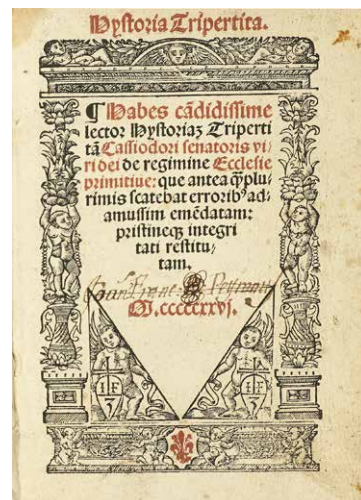 Hystoria Tripertita.
¶ Habes cādidissime
lector Hystoriaȝ Triperti
tā Cassiodori senatoris vi/
ri dei de regimine Ecclesie
primitiue: que antea q̄ȝplu/
rimis scatebat errorib⁹ ad/
amussim emēdatam:
pristineqȝ integri
tati restitu/
tam.
M.cccccxxvj.
I F
I F